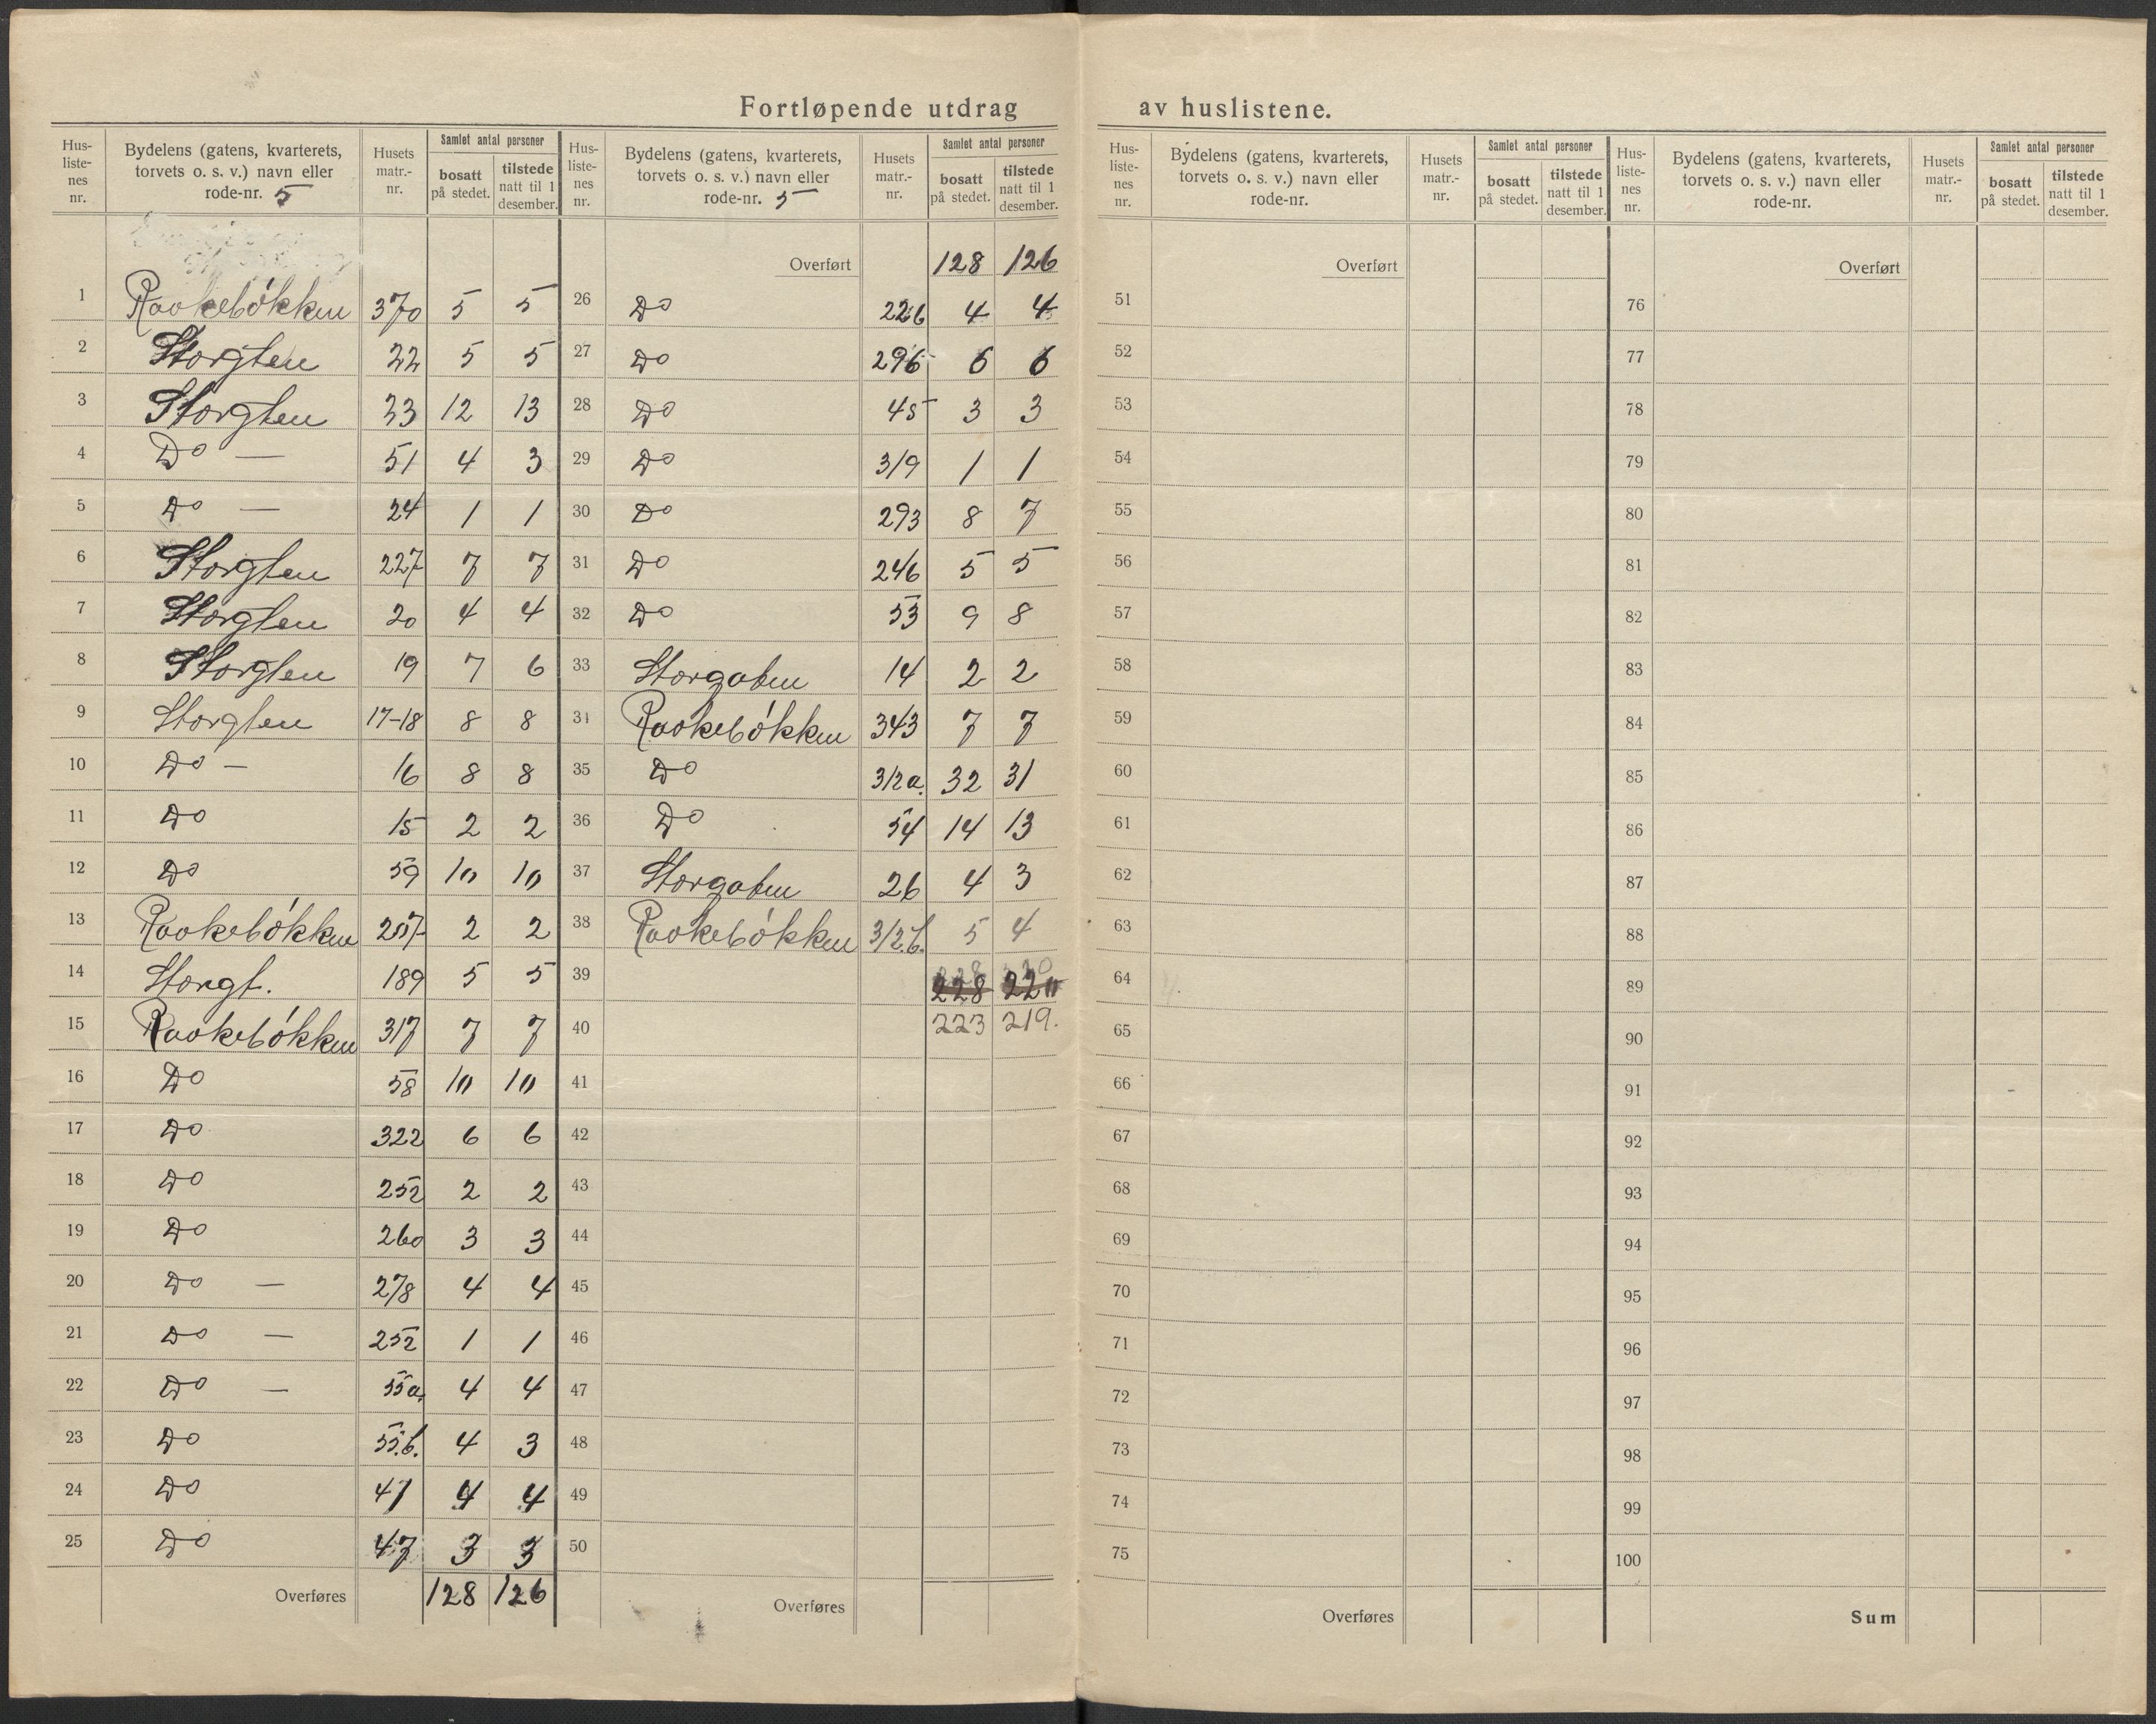 Fortløpende utdrag av huslistene.
Hus-listenes nr. | Bydelens (gatens, kvarterets, torvets o. s. v.) navn eller rode-nr. 5 | Husets matr.-nr. | Samlet antal personer | bosatt på stedet. | tilstede natt til 1 desember.
1 Raakebökken 370 5 5
2 Storgten 22 5 5
3 Storgten 23 12 13
4 Do — 51 4 3
5 Do — 24 1 1
6 Storgten 227 7 7
7 Storgten 20 4 4
8 Storgten 19 7 6
9 Storgten 17-18 8 8
10 Do — 16 8 8
11 Do 15 2 2
12 Do 59 10 10
13 Raakebökken 257 2 2
14 Storgt. 189 5 5
15 Raakebökken 317 7 7
16 Do 58 10 10
17 Do 322 6 6
18 Do 252 2 2
19 Do 260 3 3
20 Do — 278 4 4
21 Do — 252 1 1
22 Do — 55a. 4 4
23 Do 55.b. 4 3
24 Do 47 4 4
25 Do 47 3 3
Overføres 128 126
Hus-listenes nr. | Bydelens (gatens, kvarterets, torvets o. s. v.) navn eller rode-nr. 5 | Husets matr.-nr. | Samlet antal personer | bosatt på stedet. | tilstede natt til 1 desember.
Overført 128 126
26 Do 226 4 4
27 Do 296 6 6
28 Do 45 3 3
29 Do 319 1 1
30 Do 293 8 7
31 Do 246 5 5
32 Do 53 9 8
33 Storgaten 14 2 2
34 Raakebökken 343 7 7
35 Do 312a. 32 31
36 Do 54 14 13
37 Storgaten 26 4 3
38 Raakebökken 312.b. 5 4
39 228 220
40 223 219.
41
42
43
44
45
46
47
48
49
50
Overføres
Hus-listenes nr. | Bydelens (gatens, kvarterets, torvets o. s. v.) navn eller rode-nr. | Husets matr.-nr. | Samlet antal personer | bosatt på stedet. | tilstede natt til 1 desember.
Overført
51
52
53
54
55
56
57
58
59
60
61
62
63
64
65
66
67
68
69
70
71
72
73
74
75
Overføres
Hus-listenes nr. | Bydelens (gatens, kvarterets, torvets o. s. v.) navn eller rode-nr. | Husets matr.-nr. | Samlet antal personer | bosatt på stedet. | tilstede natt til 1 desember.
Overført
76
77
78
79
80
81
82
83
84
85
86
87
88
89
90
91
92
93
94
95
96
97
98
99
100
Sum